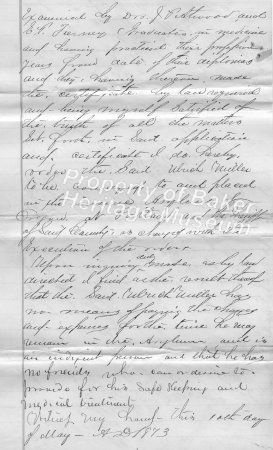 Examined by Drs. J. and
E. S. Turney Graduates in medicine
and having practiced their profession
years from date of their diplomas
and they having thereon made
the certificate by law required
and being myself satisfied of
the truth of all the matters
set forth in said application
and certificate I do hereby
order the said Ulrich Miller
to be and placed
in the
at
of said County is charged with
Execution of the order
Upon inquiry and made as by law
directed I find as the result thereof
that the said Ulrich Miller has
no means of paying the charges
and expenses for the time he may
remain in the Asylum and is
an indigent person and that he has
no friends who can or desire to
provide for his safe keeping and
medical treatment
Witness my hand this 10th day
of May A D 1873
Property of Baker
Heritage Museum